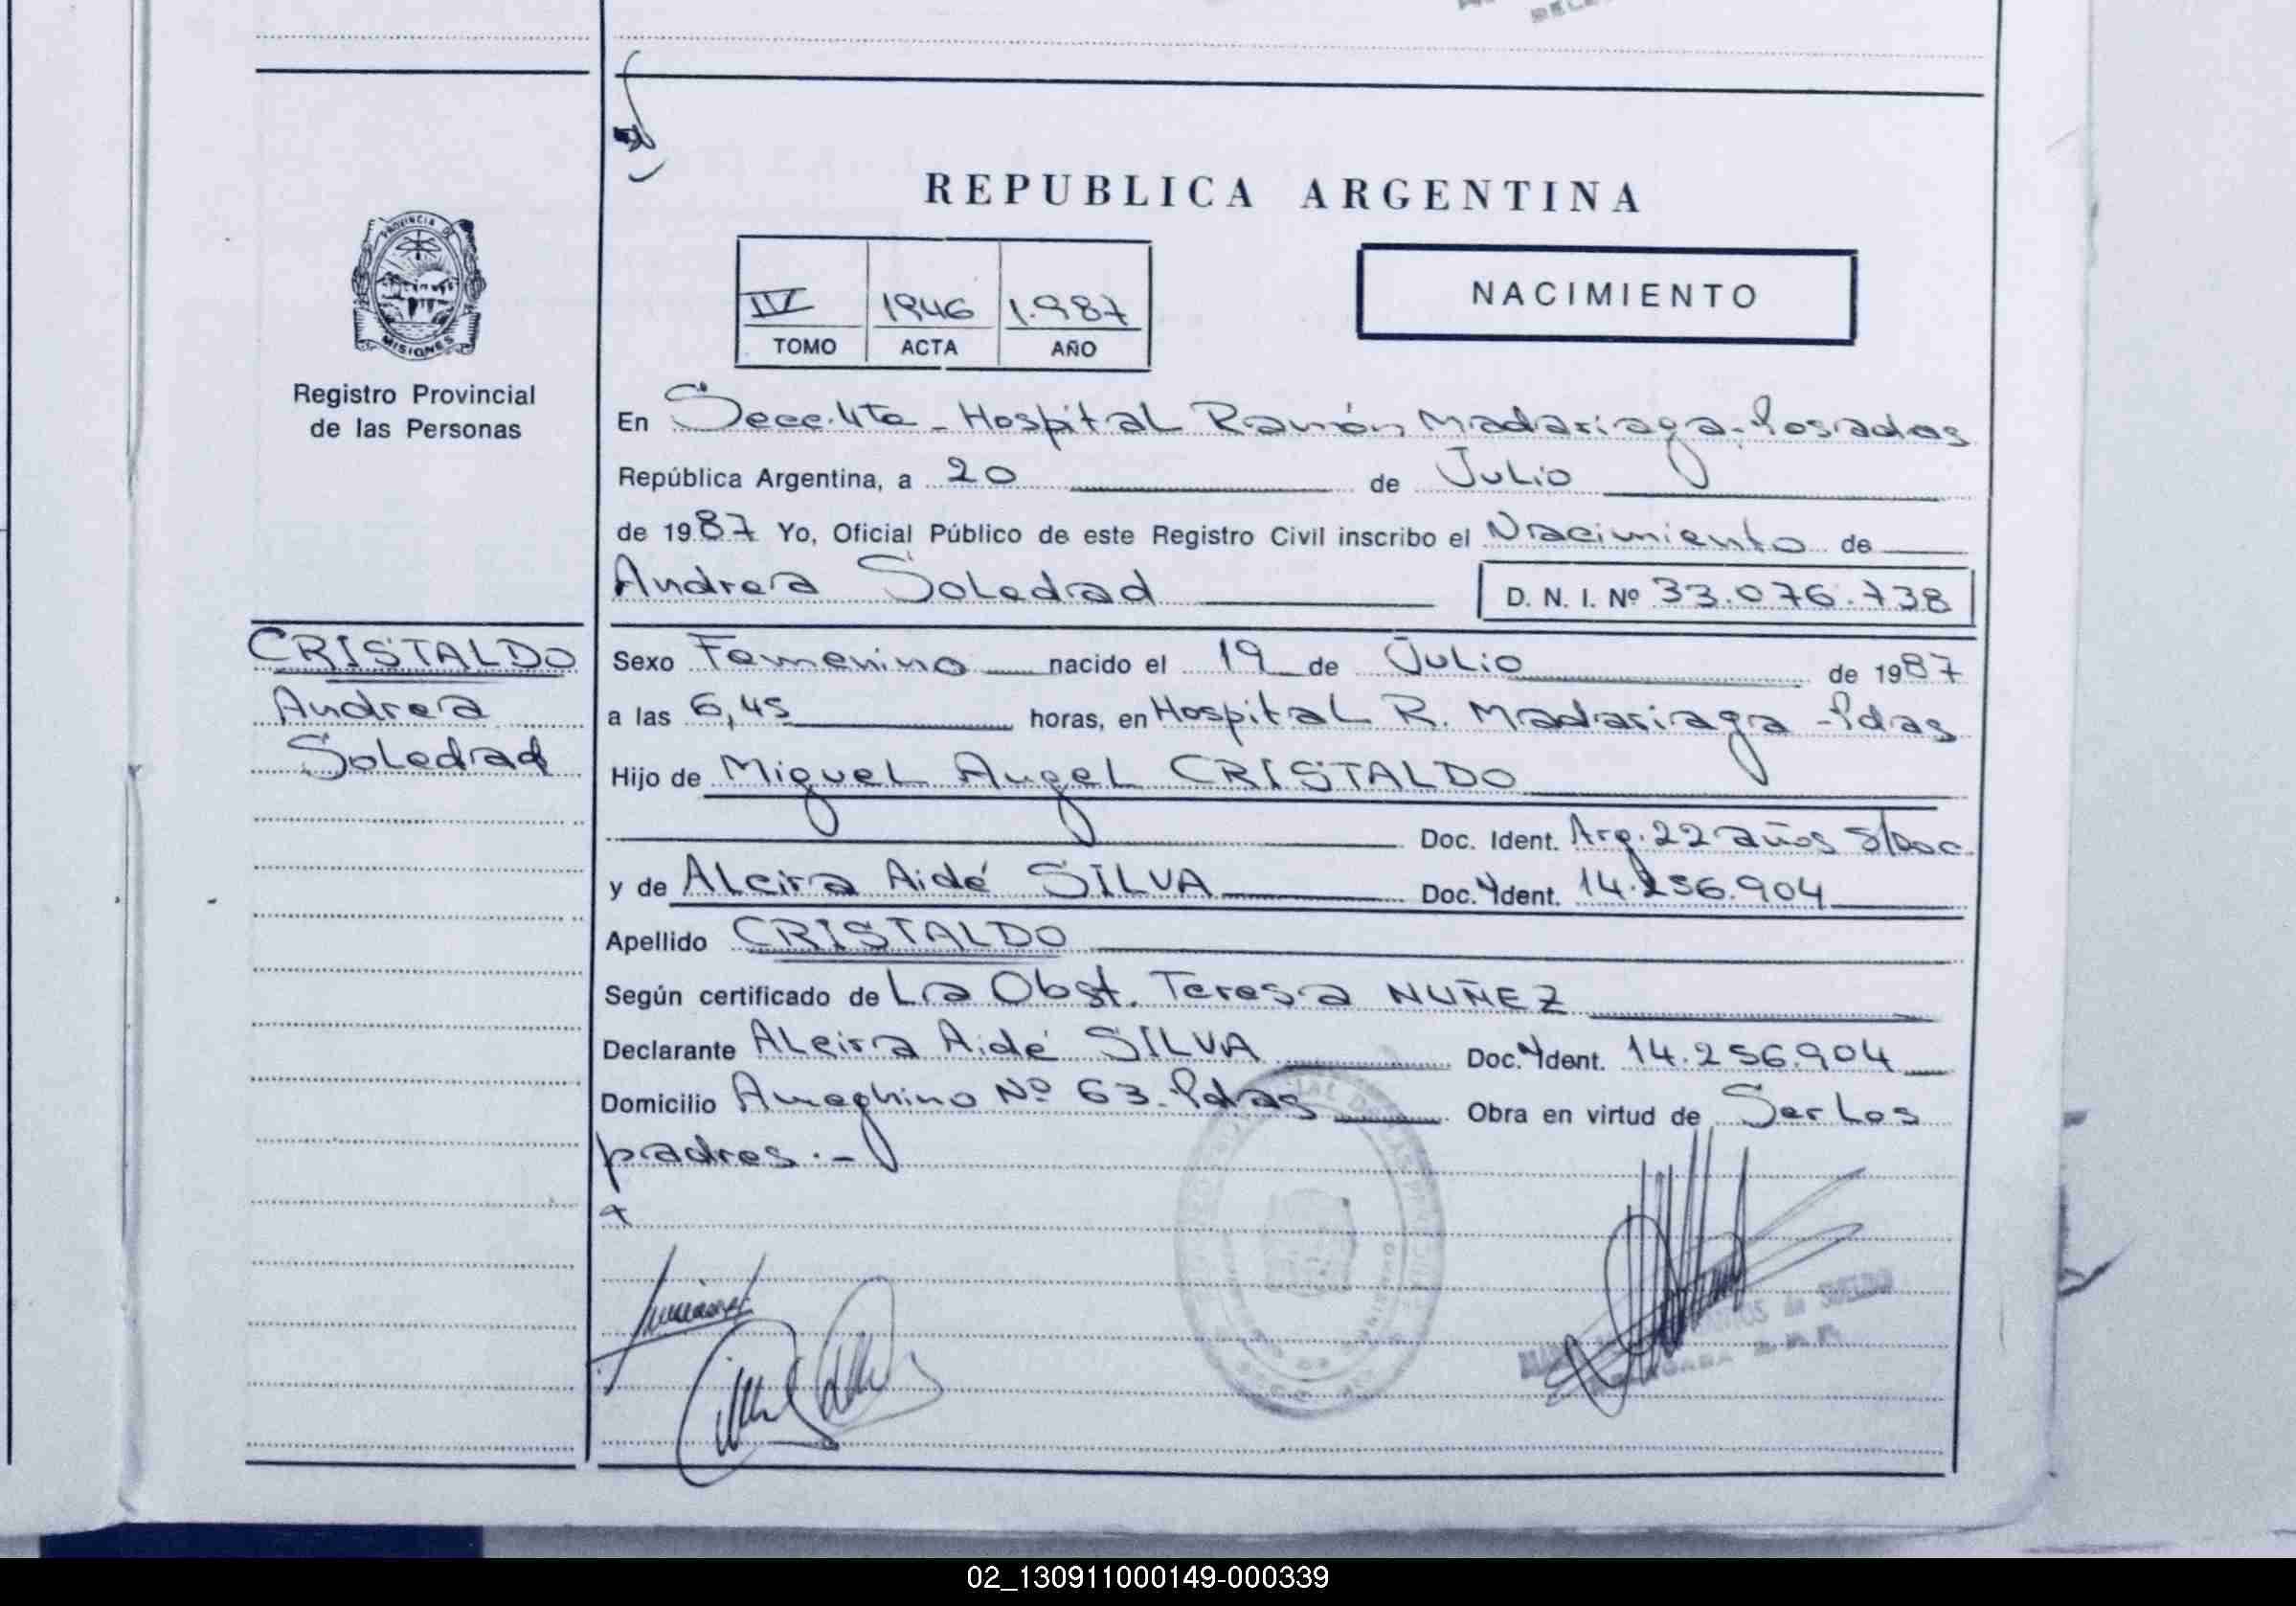 REPUBLICA ARGENTINA
PROVINCIA DE
MISIONES
Registro Provincial
de las Personas
IV 1946 1.987
TOMO ACTA AÑO
NACIMIENTO
En Secc. 4ta - Hospital Ramón Madariaga - Posadas
República Argentina, a 20 de Julio
de 1987 Yo, Oficial Público de este Registro Civil inscribo el Nacimiento de
Andrea Soledad D. N. I. Nº 33.076.738
CRISTALDO
Andrea
Soledad
Sexo Femenino nacido el 19 de Julio de 1987
a las 6,45 horas, en Hospital R. Madariaga - Pdas
Hijo de Miguel Angel CRISTALDO
Doc. Ident. Arg. 22 años S/Doc.
y de Alcira Aidé SILVA Doc. Ident. 14.256.904
Apellido CRISTALDO
Según certificado de La Obst. Teresa NUÑEZ
Declarante Alcira Aidé SILVA Doc. Ident. 14.256.904
Domicilio Ameghino Nº 63. Pdas Obra en virtud de Ser los
padres.-
de SUELDO
02_130911000149-000339